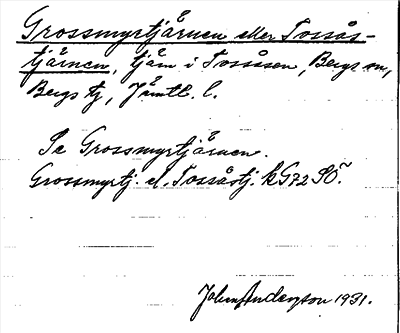 Grossmyrtjärnen eller Tossås-
tjärnen, tjärn i Tossåsen, Bergs sn,
Bergs tg, Jämtl. l.
Se Grossmyrtjärnen.
Grossmyrtj. el. Tossåstj. kG72SÖ.
John Anderzson 1931.